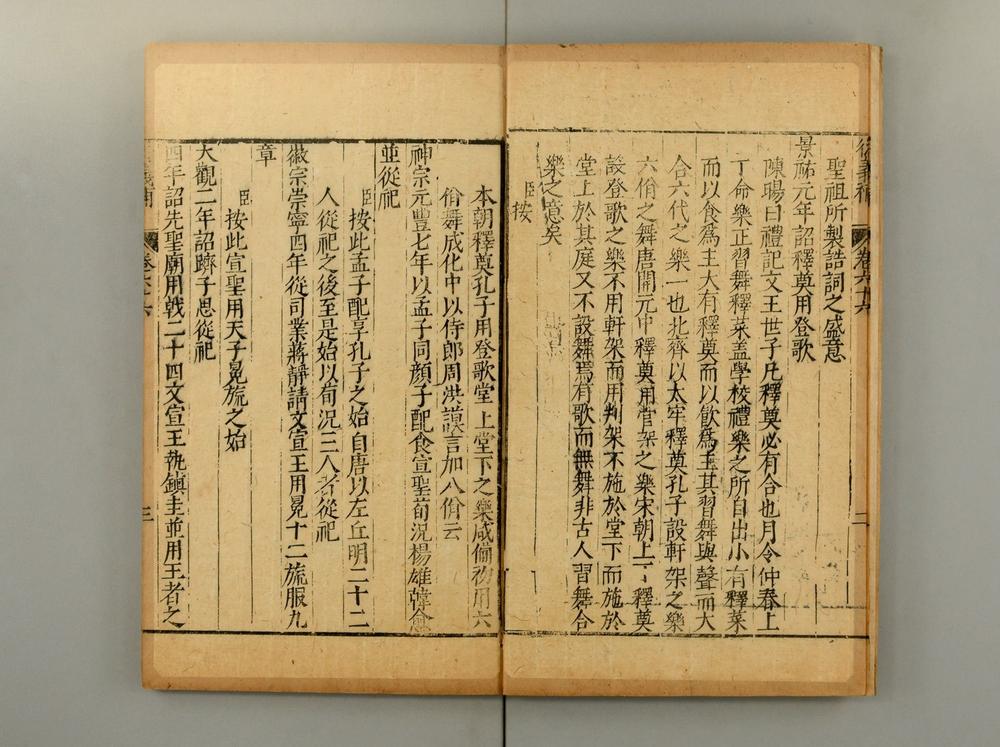 衍義補 卷六十六 二
聖祖所製誥詞之盛意
景祐元年詔釋奠用登歌
陳暘曰禮記文王世子凡釋奠必有合也月令仲春上
丁命樂正習舞釋菜盖學校禮樂之所自出小有釋菜
而以食爲主大有釋奠而以飲爲主其習舞與聲而大
合六代之樂一也北齊以太牢釋奠孔子設軒架之樂
六佾之舞唐開元中釋奠用宫架之樂宋朝上丁釋奠
設登歌之樂不用軒架而用判架不施於堂下而施於
堂上於其庭又不設舞焉有歌而無舞非古人習舞合
樂之意矣
臣按
本朝釋奠孔子用登歌堂上堂下之樂咸備初用六
佾舞成化中以侍郎周洪謨言加八佾云
神宗元豐七年以孟子同顏子配食宣聖荀況楊雄韓愈
並從祀
臣按此孟子配享孔子之始自唐以左丘明二十二
人從祀之後至是始以荀況三人者從祀
徽宗崇寧四年從司業蔣靜請文宣王用冕十二旒服九
章
臣按此宣聖用天子冕旒之始
大觀二年詔躋子思從祀
四年詔先聖廟用戟二十四文宣王執鎮圭並用王者之
卷六十六 三